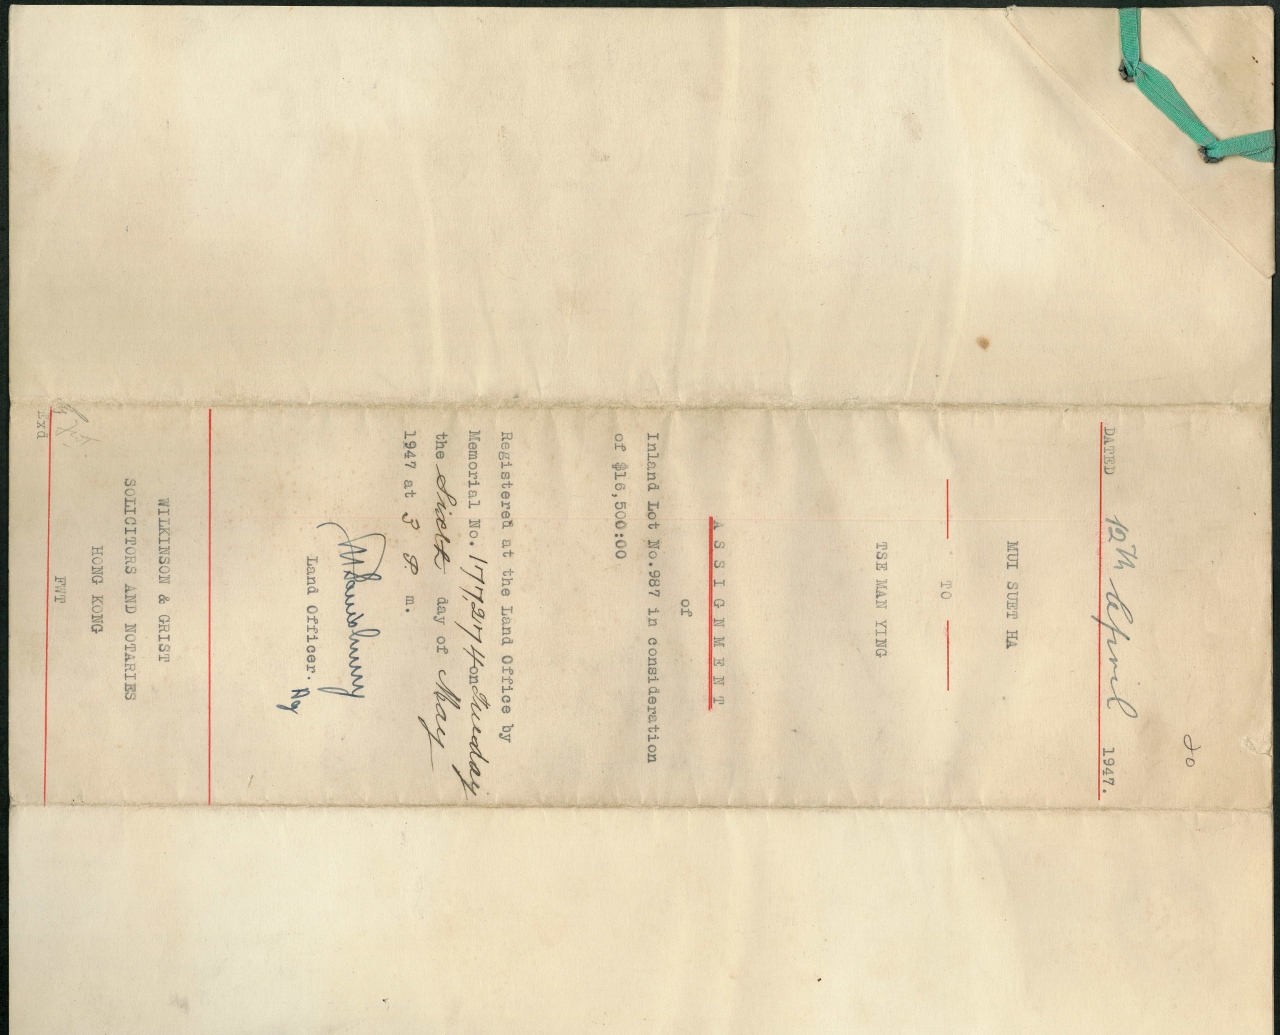 20
DATED 12th April 1947.
MUI SUET HA
TO
TSE MAN YING
ASSIGNMENT
of
Inland Lot No.987 in consideration
of $16,500:00
Registered at the Land Office by
Memorial No. 177,274 on Tuesday
the Sixth day of May
1947 at 3 P. m.
Land Officer. Ag
WILKINSON & GRIST
SOLICITORS AND NOTARIES
HONG KONG
FWT
Exd